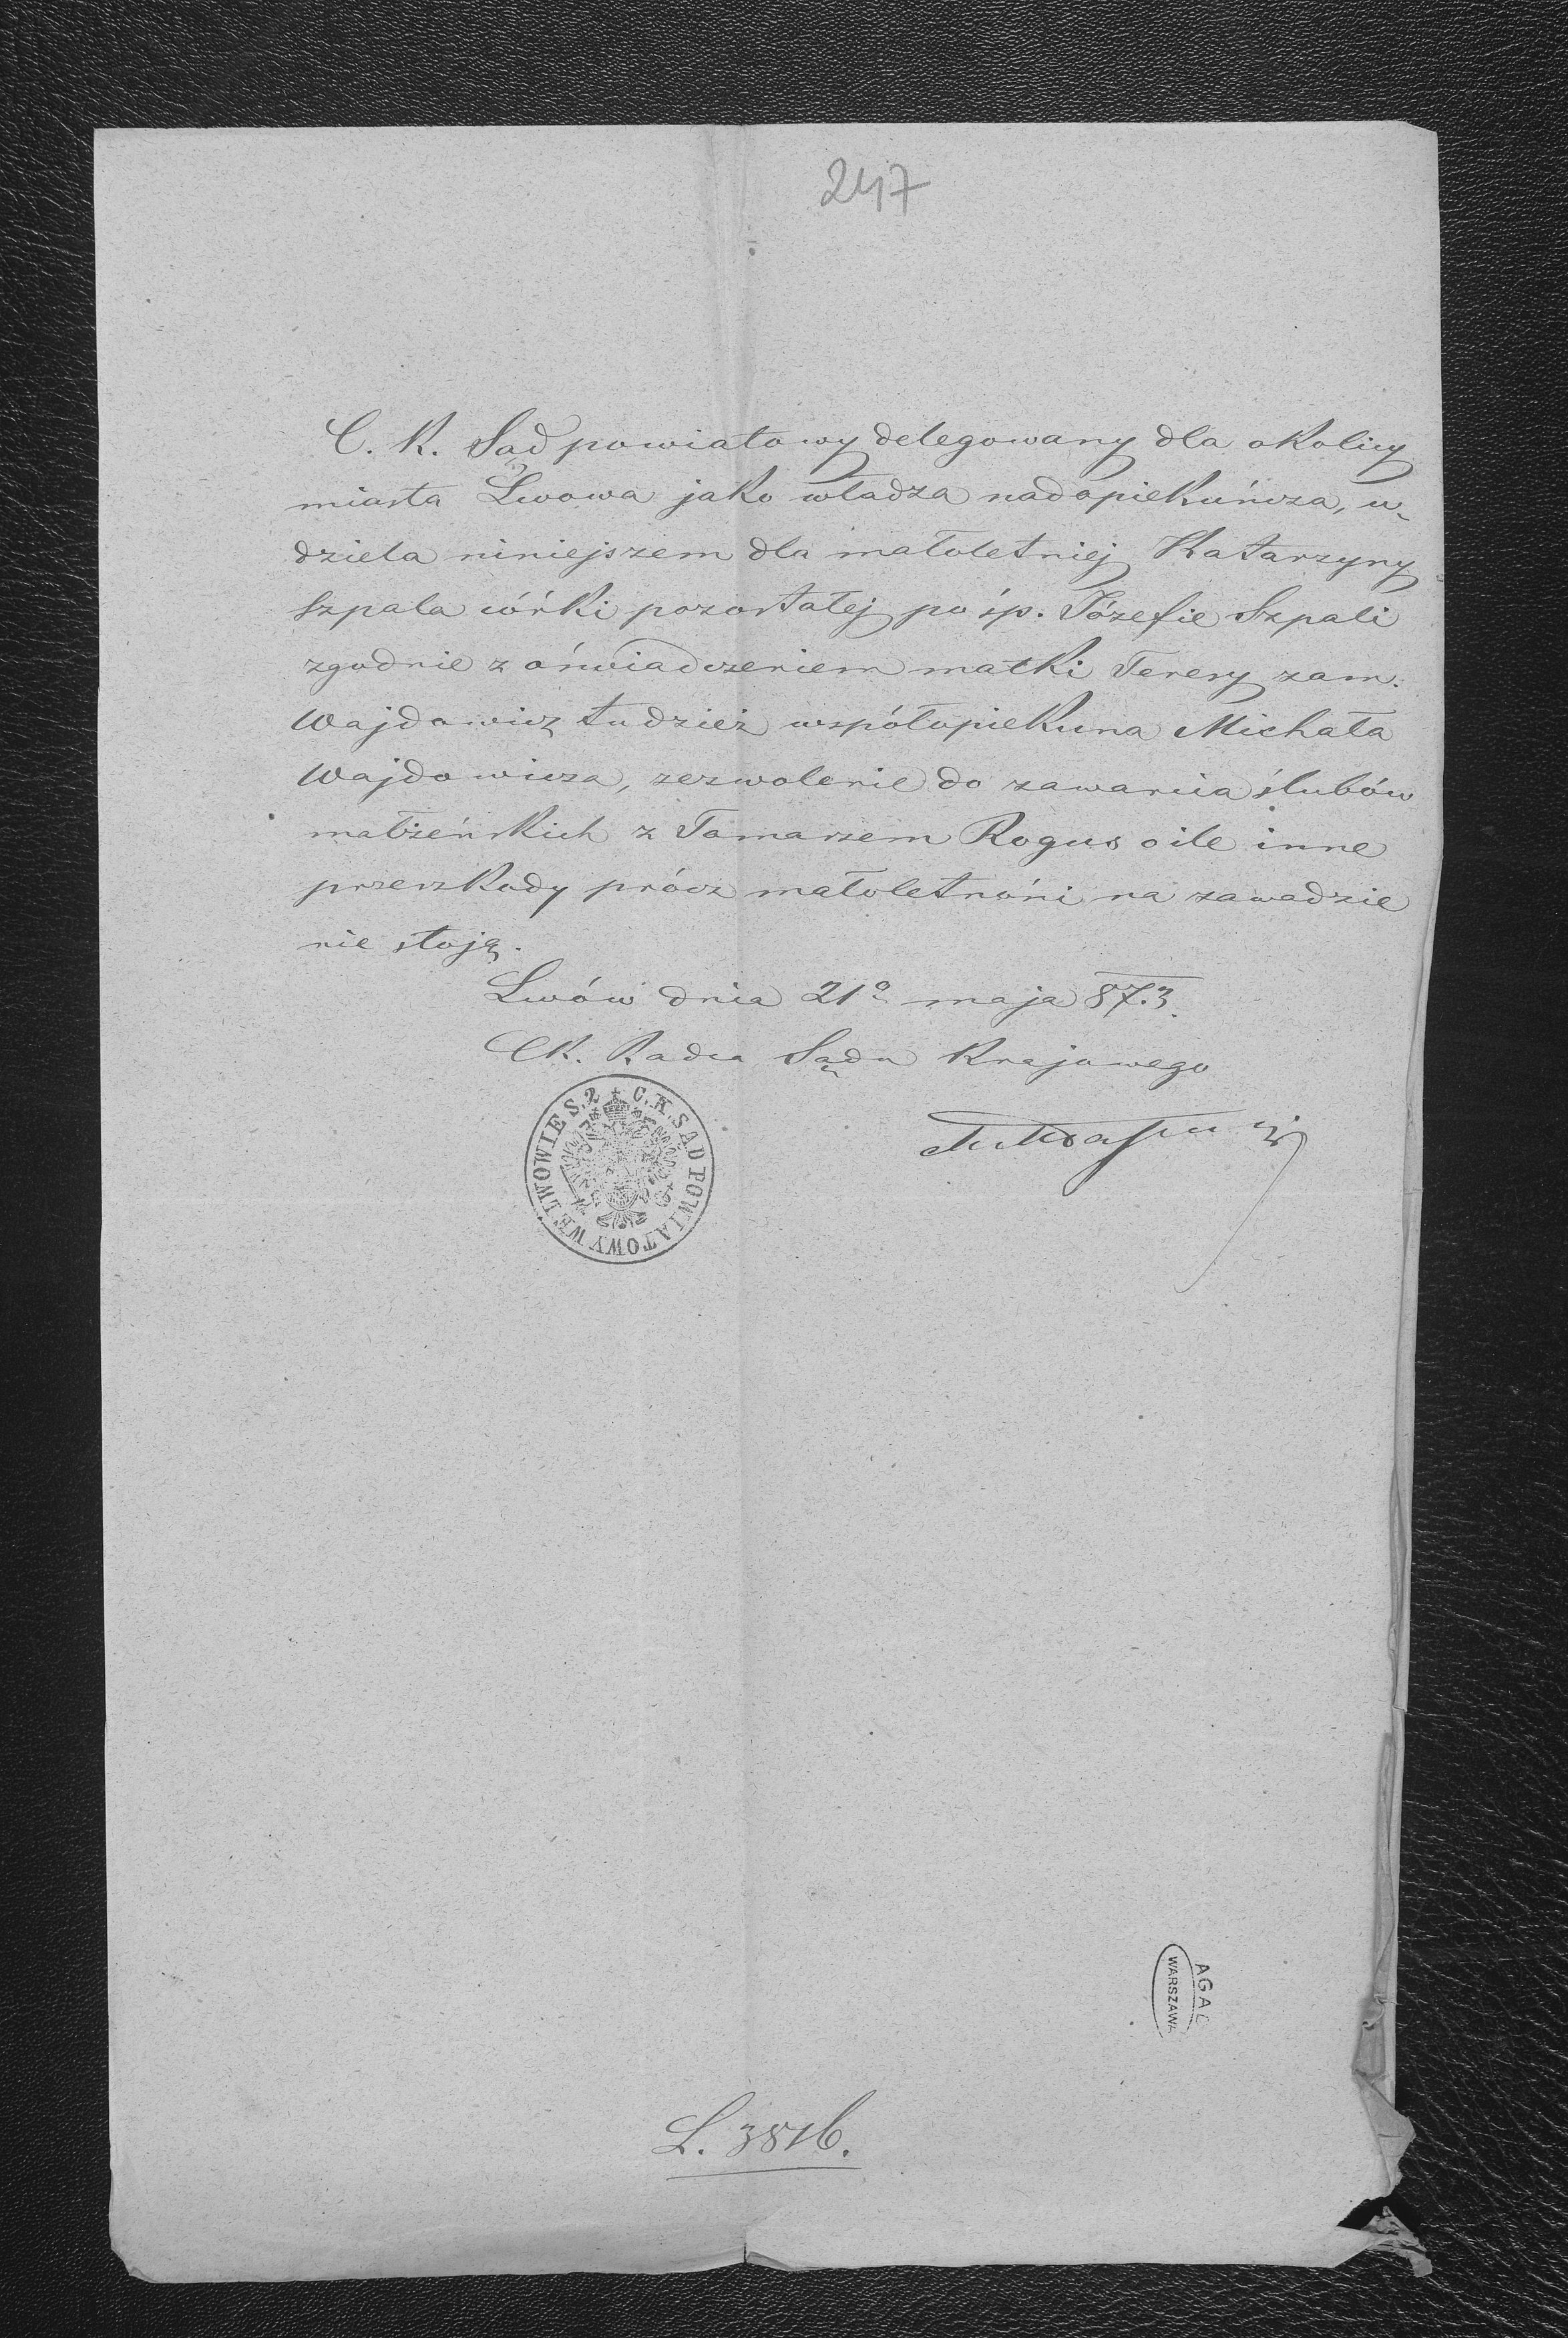 247
C. K. Sąd powiatowy delegowany dla okolicy
miasta Lwowa jako władza nadopiekuńcza, u-
dziela niniejszem dla małoletniej Katarzyny
Szpala córki pozostałej po śp. Józefie Szpali
zgodnie z oświadczeniem matki Teresy zam.
Wajdowicz tudzież współopiekuna Michała
Wajdowicza, zezwolenie do zawarcia ślubów
małżeńskich z Tomaszem Rogus o ile inne
przeszkody prócz małoletności na zawadzie
nie stoją.
Lwów dnia 21º maja 873.
CK. Radca Sądu Krajowego
C. K. SĄD POWIATOWY WE LWOWIE S. 2
AGAD
WARSZAWA
L. 3816.